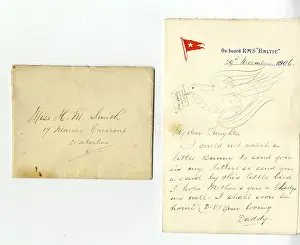 Miss H. M. Smith
17 Marine Crescent
Waterloo
On board R.M.S. "BALTIC"
29th November 1906
My dear Daughter
I could not catch a
little Bunny to send you
my letter so send you
a card by this little bird
I hope Mother & you &
are well. I shall soon be
home (D.V.) Your loving
Daddy